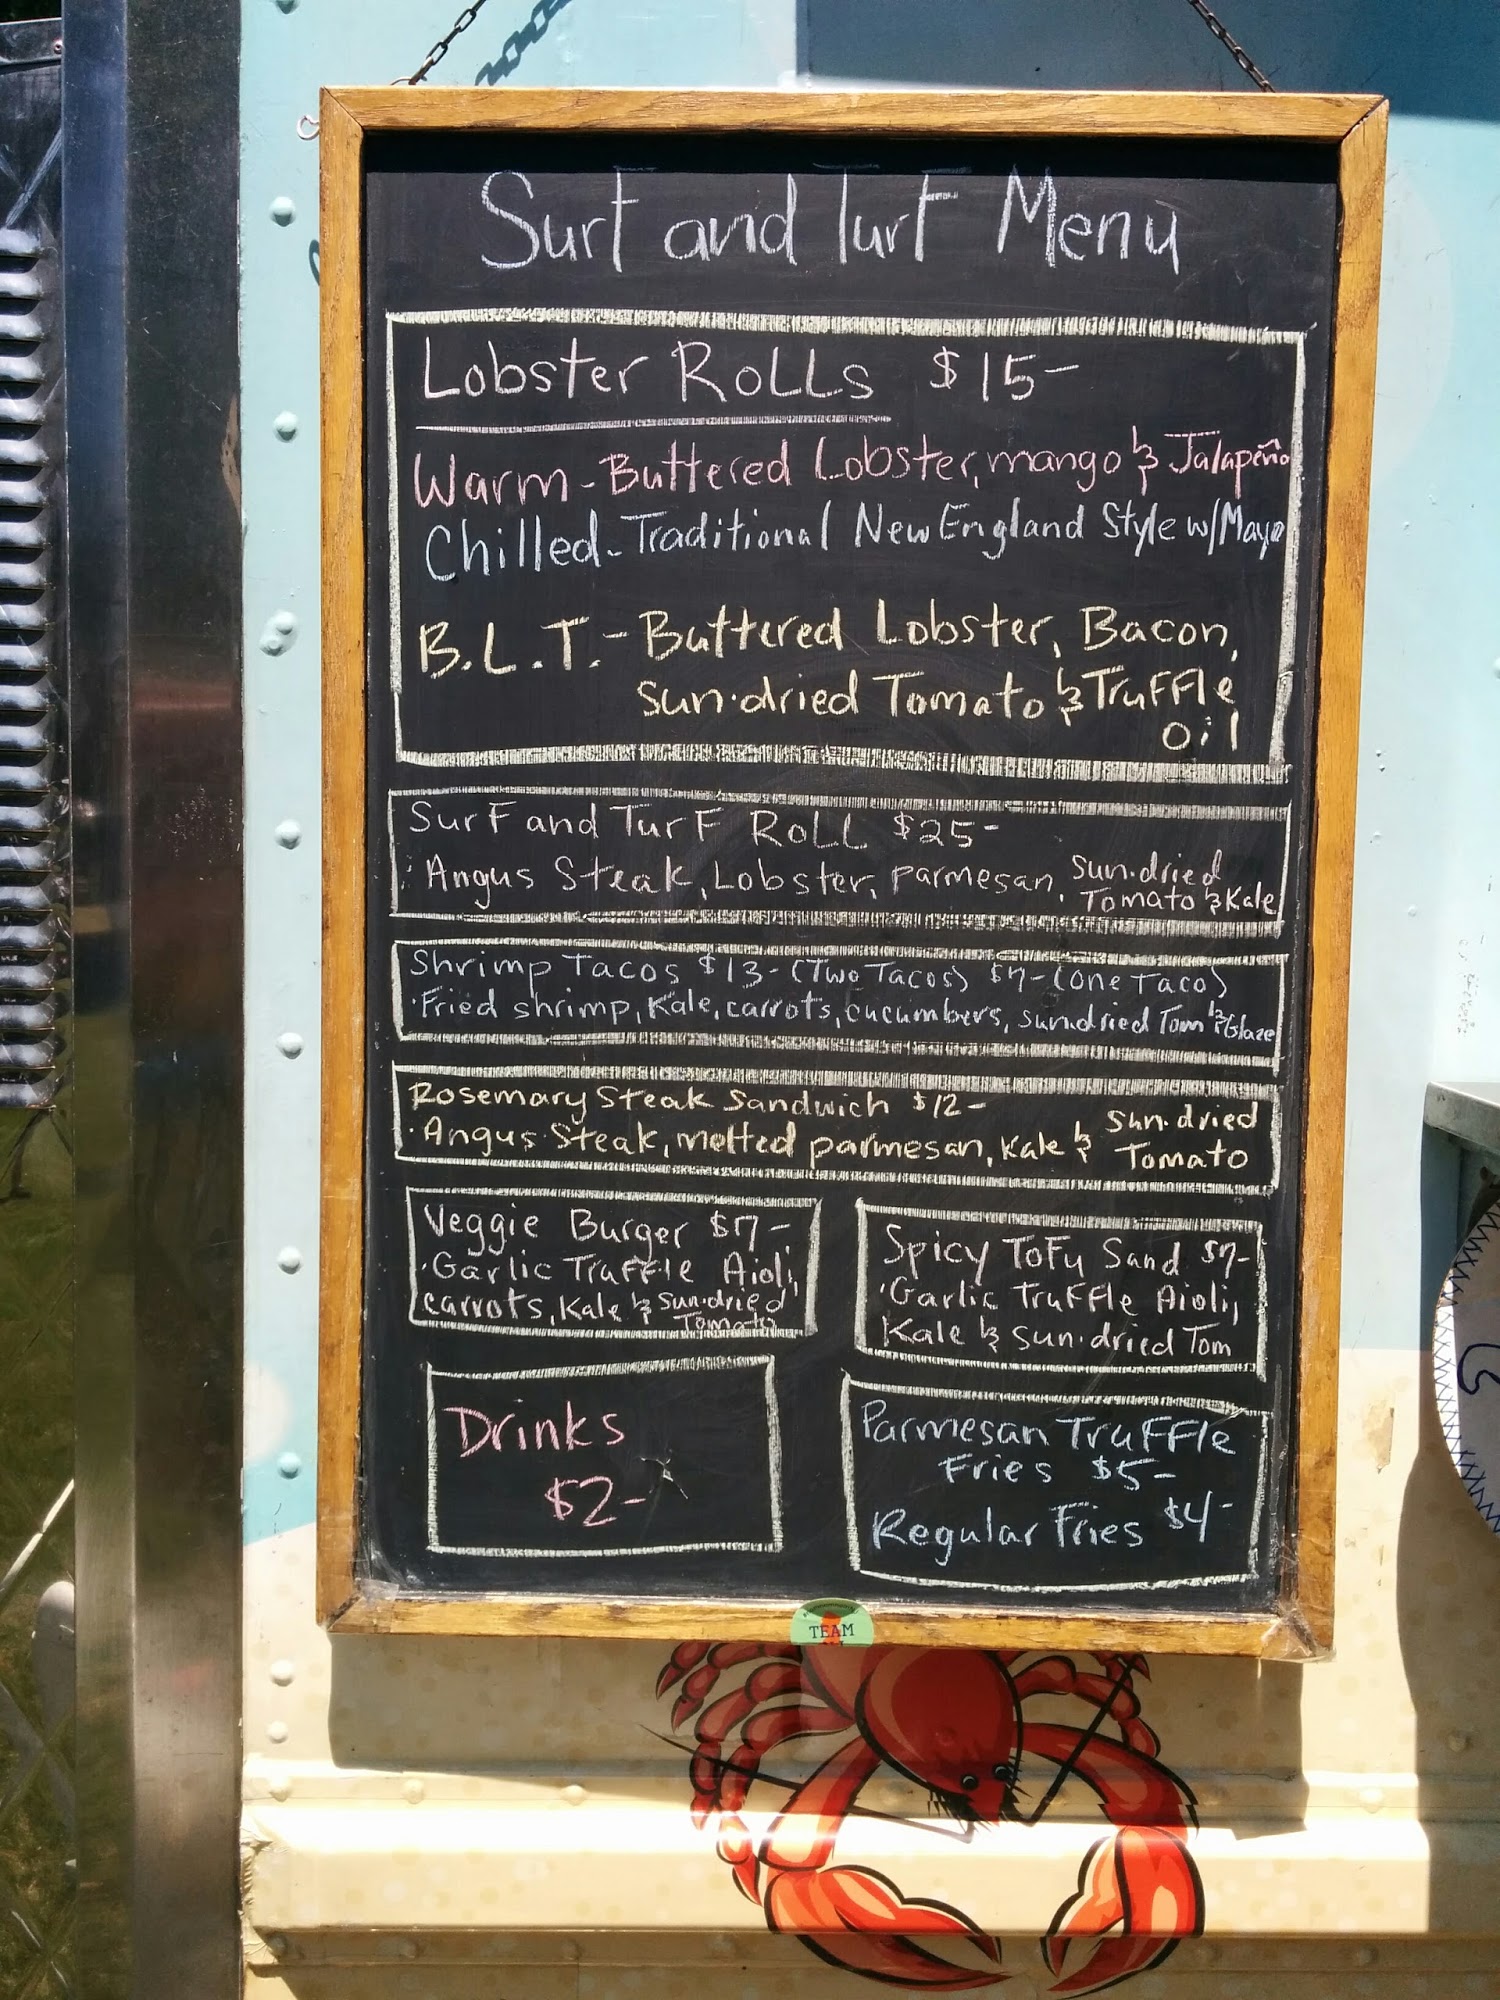 Surf and Turf Menu
Lobster Rolls $15-
Warm-Buttered Lobster, mango & Jalapeño
Chilled-Traditional New England Style w/Mayo
B.L.T.- Buttered Lobster, Bacon,
sun-dried Tomato & Truffle
oil
Surf and Turf Roll $25-
· Angus Steak, Lobster, parmesan, sun-dried
Tomato & Kale
Shrimp Tacos $13- (Two Tacos) $7- (one Taco)
·Fried shrimp, Kale, carrots, cucumbers, sun-dried Tom & Glaze
Rosemary Steak Sandwich $12-
·Angus Steak, melted parmesan, Kale & sun-dried
Tomato
Veggie Burger $7-
·Garlic Truffle Aioli,
carrots, Kale & sun-dried
Tomato
Spicy Tofu Sand $7-
·Garlic Truffle Aioli,
Kale & sun-dried Tom
Drinks
$2-
Parmesan Truffle
Fries $5-
Regular Fries $4-
TEAM